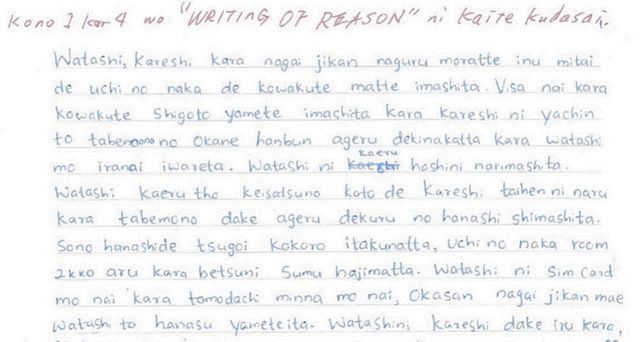 Kono 1 kar 4 wo "WRITING OF REASON" ni kaite kudasai.
Watashi, kareshi kara nagai jikan naguru moratte inu mitai
de uchi no naka de kowakute matte imashita. Visa nai kara
kowakute shigoto yamete imashita kara kareshi ni yachin
to tabemono no okane hanbun ageru dekinakatta kara watashi
mo iranai iwareta. Watashi ni kaeru hoshini narimashita.
Watashi kaeru tho keisatsuno koto de kareshi taihen ni naru
kara tabemono dake ageru dekuru no hanashi shimashita.
Sono hanashide tsugoi kokoro itakunatta, uchi no naka room
2kko aru kara betsuni sumu hajimatta. Watashi ni Sim Card
mo nai kara tomodachi minna mo nai, Okasan nagai jikan mae
watashi to hanasu yameteita. Watashini kareshi dake iru kara,